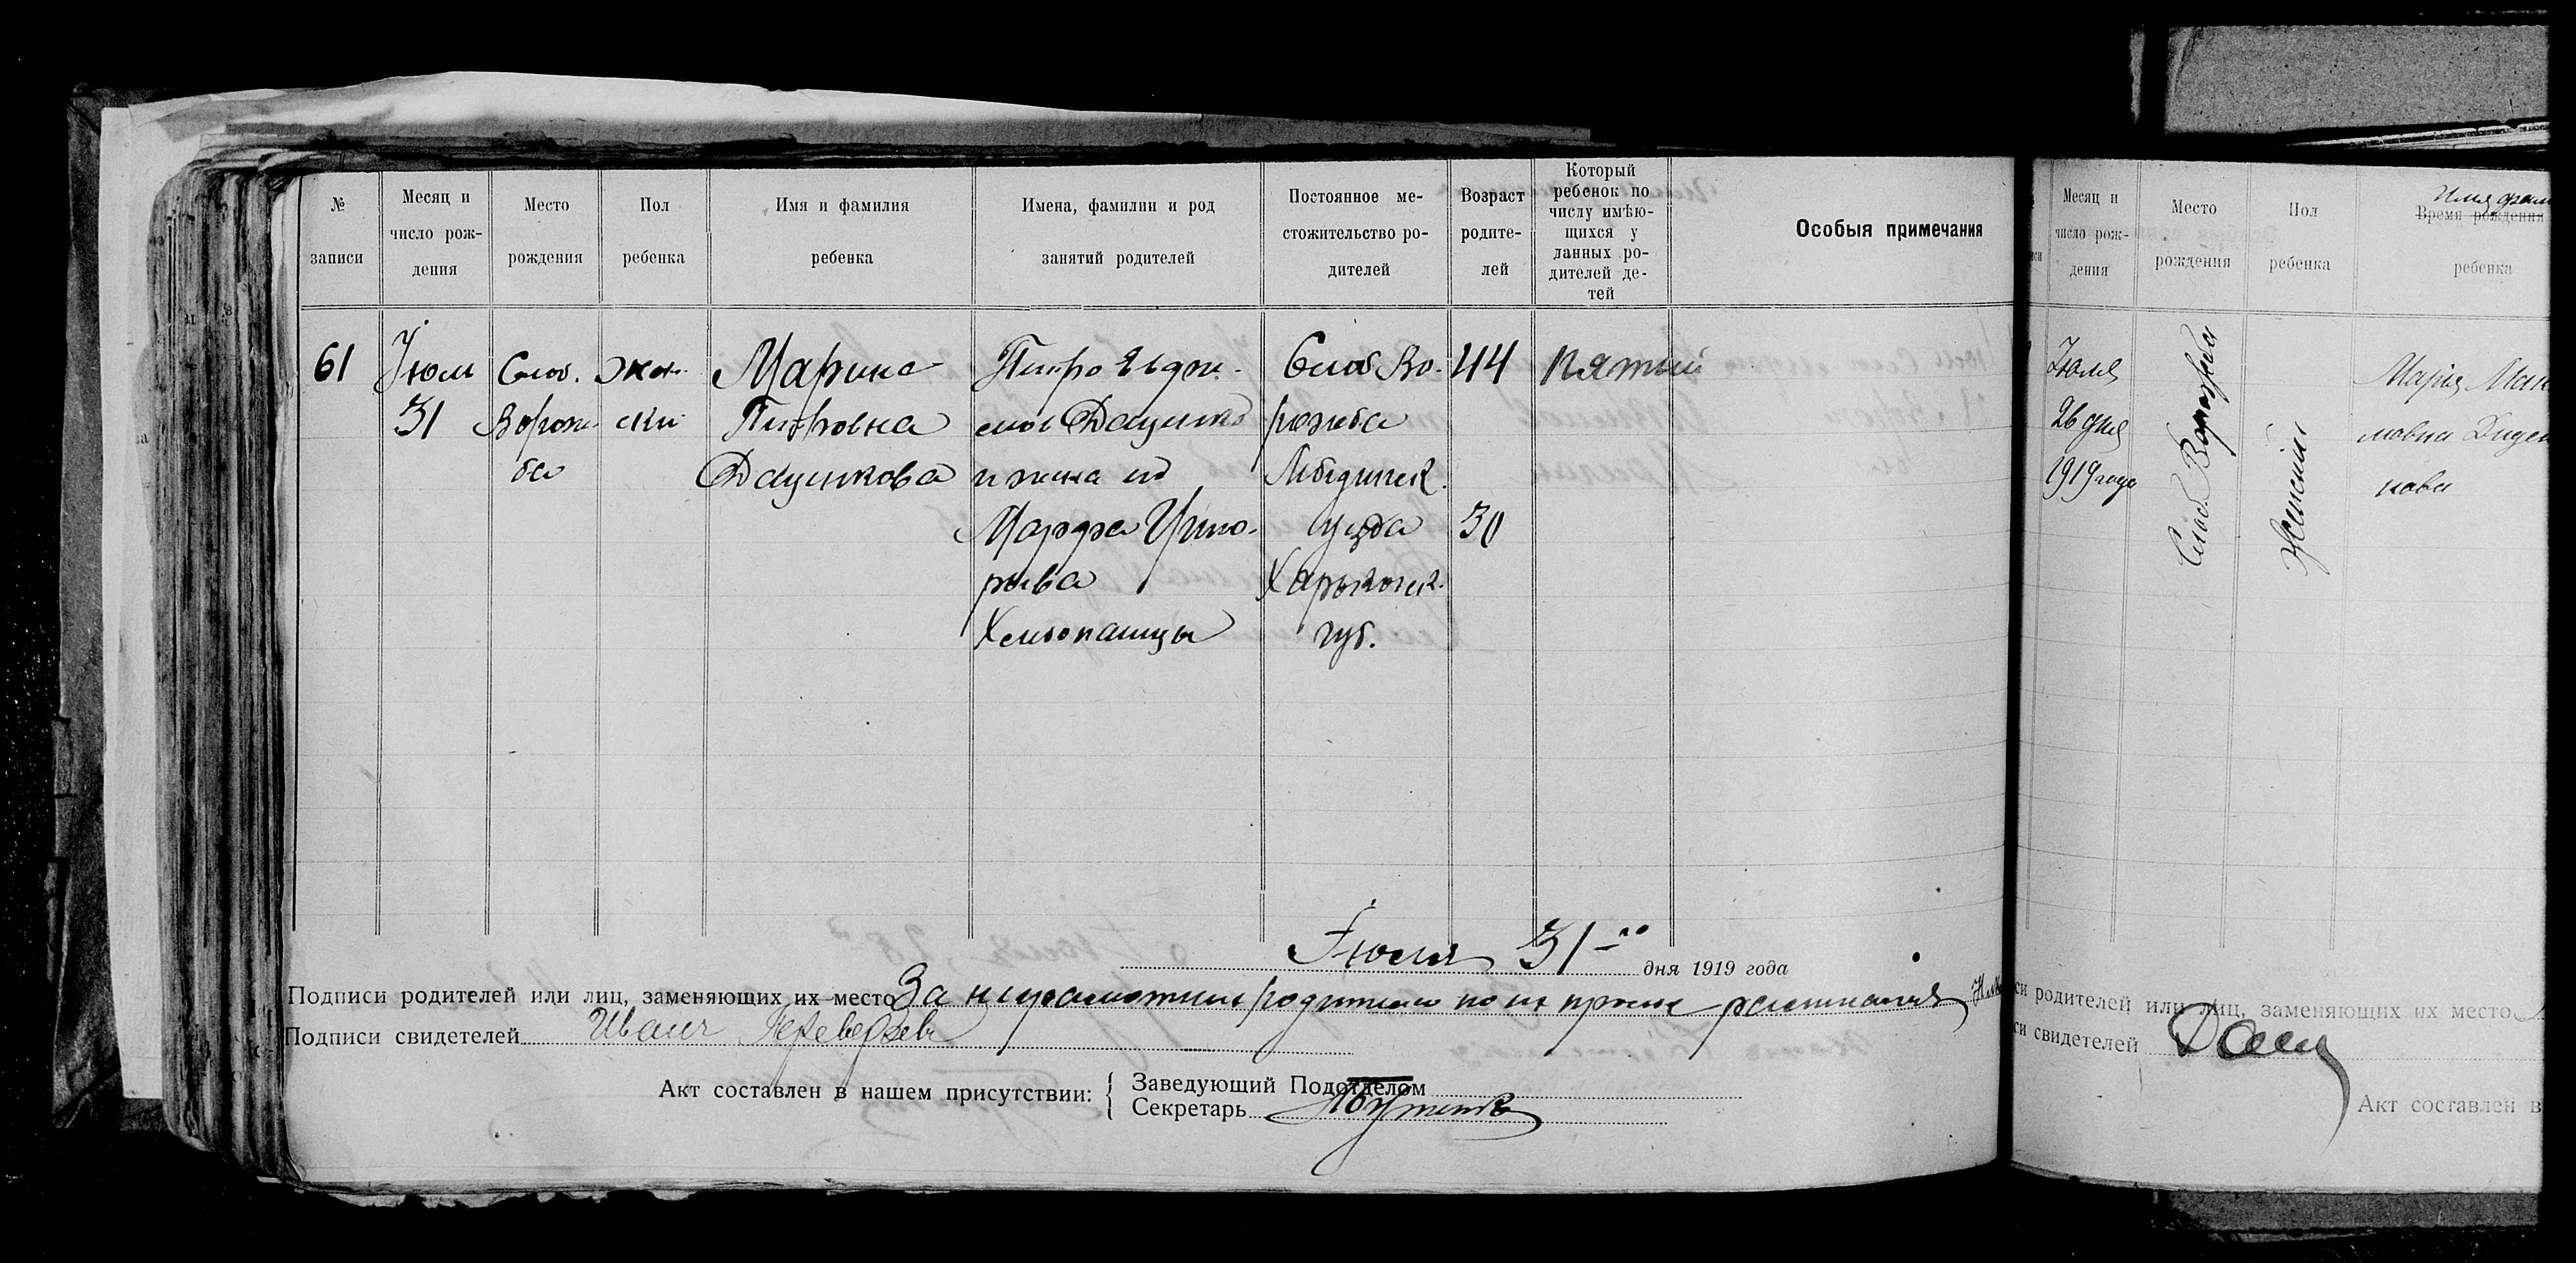 № записи
Месяц и число рождения
Место рождения
Пол ребенка
Имя и фамилия ребенка
Имена, фамилии и род занятий родителей
Постоянное местожительство родителей
Возраст родителей
Который ребенок по числу имѣющихся у данных родителей детей
Особыя примечания
61
Июля
31
Слоб.
Ворож-
ба
жен-
ский
Марина
Петровна
Дацикова
Петро
и жена его
Марфа Григо-
рьева
Хлебопашцы
Слоб. Во-
рожба
Лебединск.
уезда
Харьковск.
губ.
44
30
пятый
Июля 31-го дня 1919 года
Подписи родителей или лиц, заменяющих их место За неграмотных родителей по их просьбе расписался
Подписи свидетелей Иван
Акт составлен в нашем присутствии:
Заведующий Подотделом
Секретарь
Месяц и число рождения
Место рождения
Пол ребенка
Время рождения
ребенка
Июля
26 дня
1919 года
Слоб. Ворожба
Женский
Мария
нова
си родителей или лиц, заменяющих их место
си свидетелей
Акт составлен в